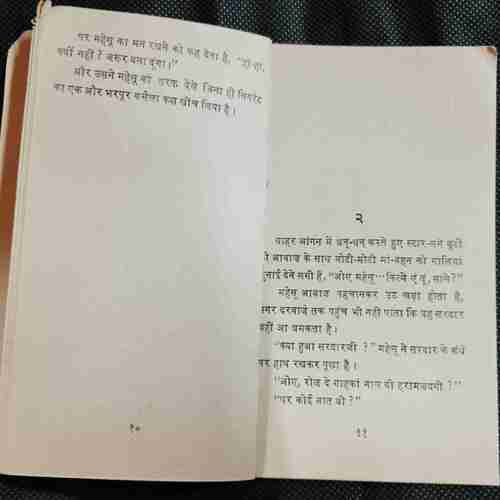 पर महेसू का मन रखने को कह देता है, "हां-हां,
क्यों नहीं ? जरूर बता दूंगा।"
और उसने महेसू की तरफ देखे बिना ही सिगरेट
का एक और भरपूर कसैला कश खींच लिया है।
१०
२
बाहर आंगन में धन्-धन् करते हुए स्टार-लगे बूटों
की आवाज के साथ मोटी-मोटी मां-बहन की गालियां
सुनाई देने लगी हैं, "ओए महेसू··· कित्थे एं तू, साले ?"
महेसू आवाज पहचानकर उठ खड़ा होता है,
मगर दरवाजे तक पहुंच भी नहीं पाता कि वह सरदार
वहीं आ धमकता है।
"क्या हुआ सरदारजी ?" महेसू ने सरदार के कंधे
पर हाथ रखकर पूछा है।
"ओए, रोज दे गाहकां नाल वी हरामजदगी ?"
"पर कोई बात वी ?"
११